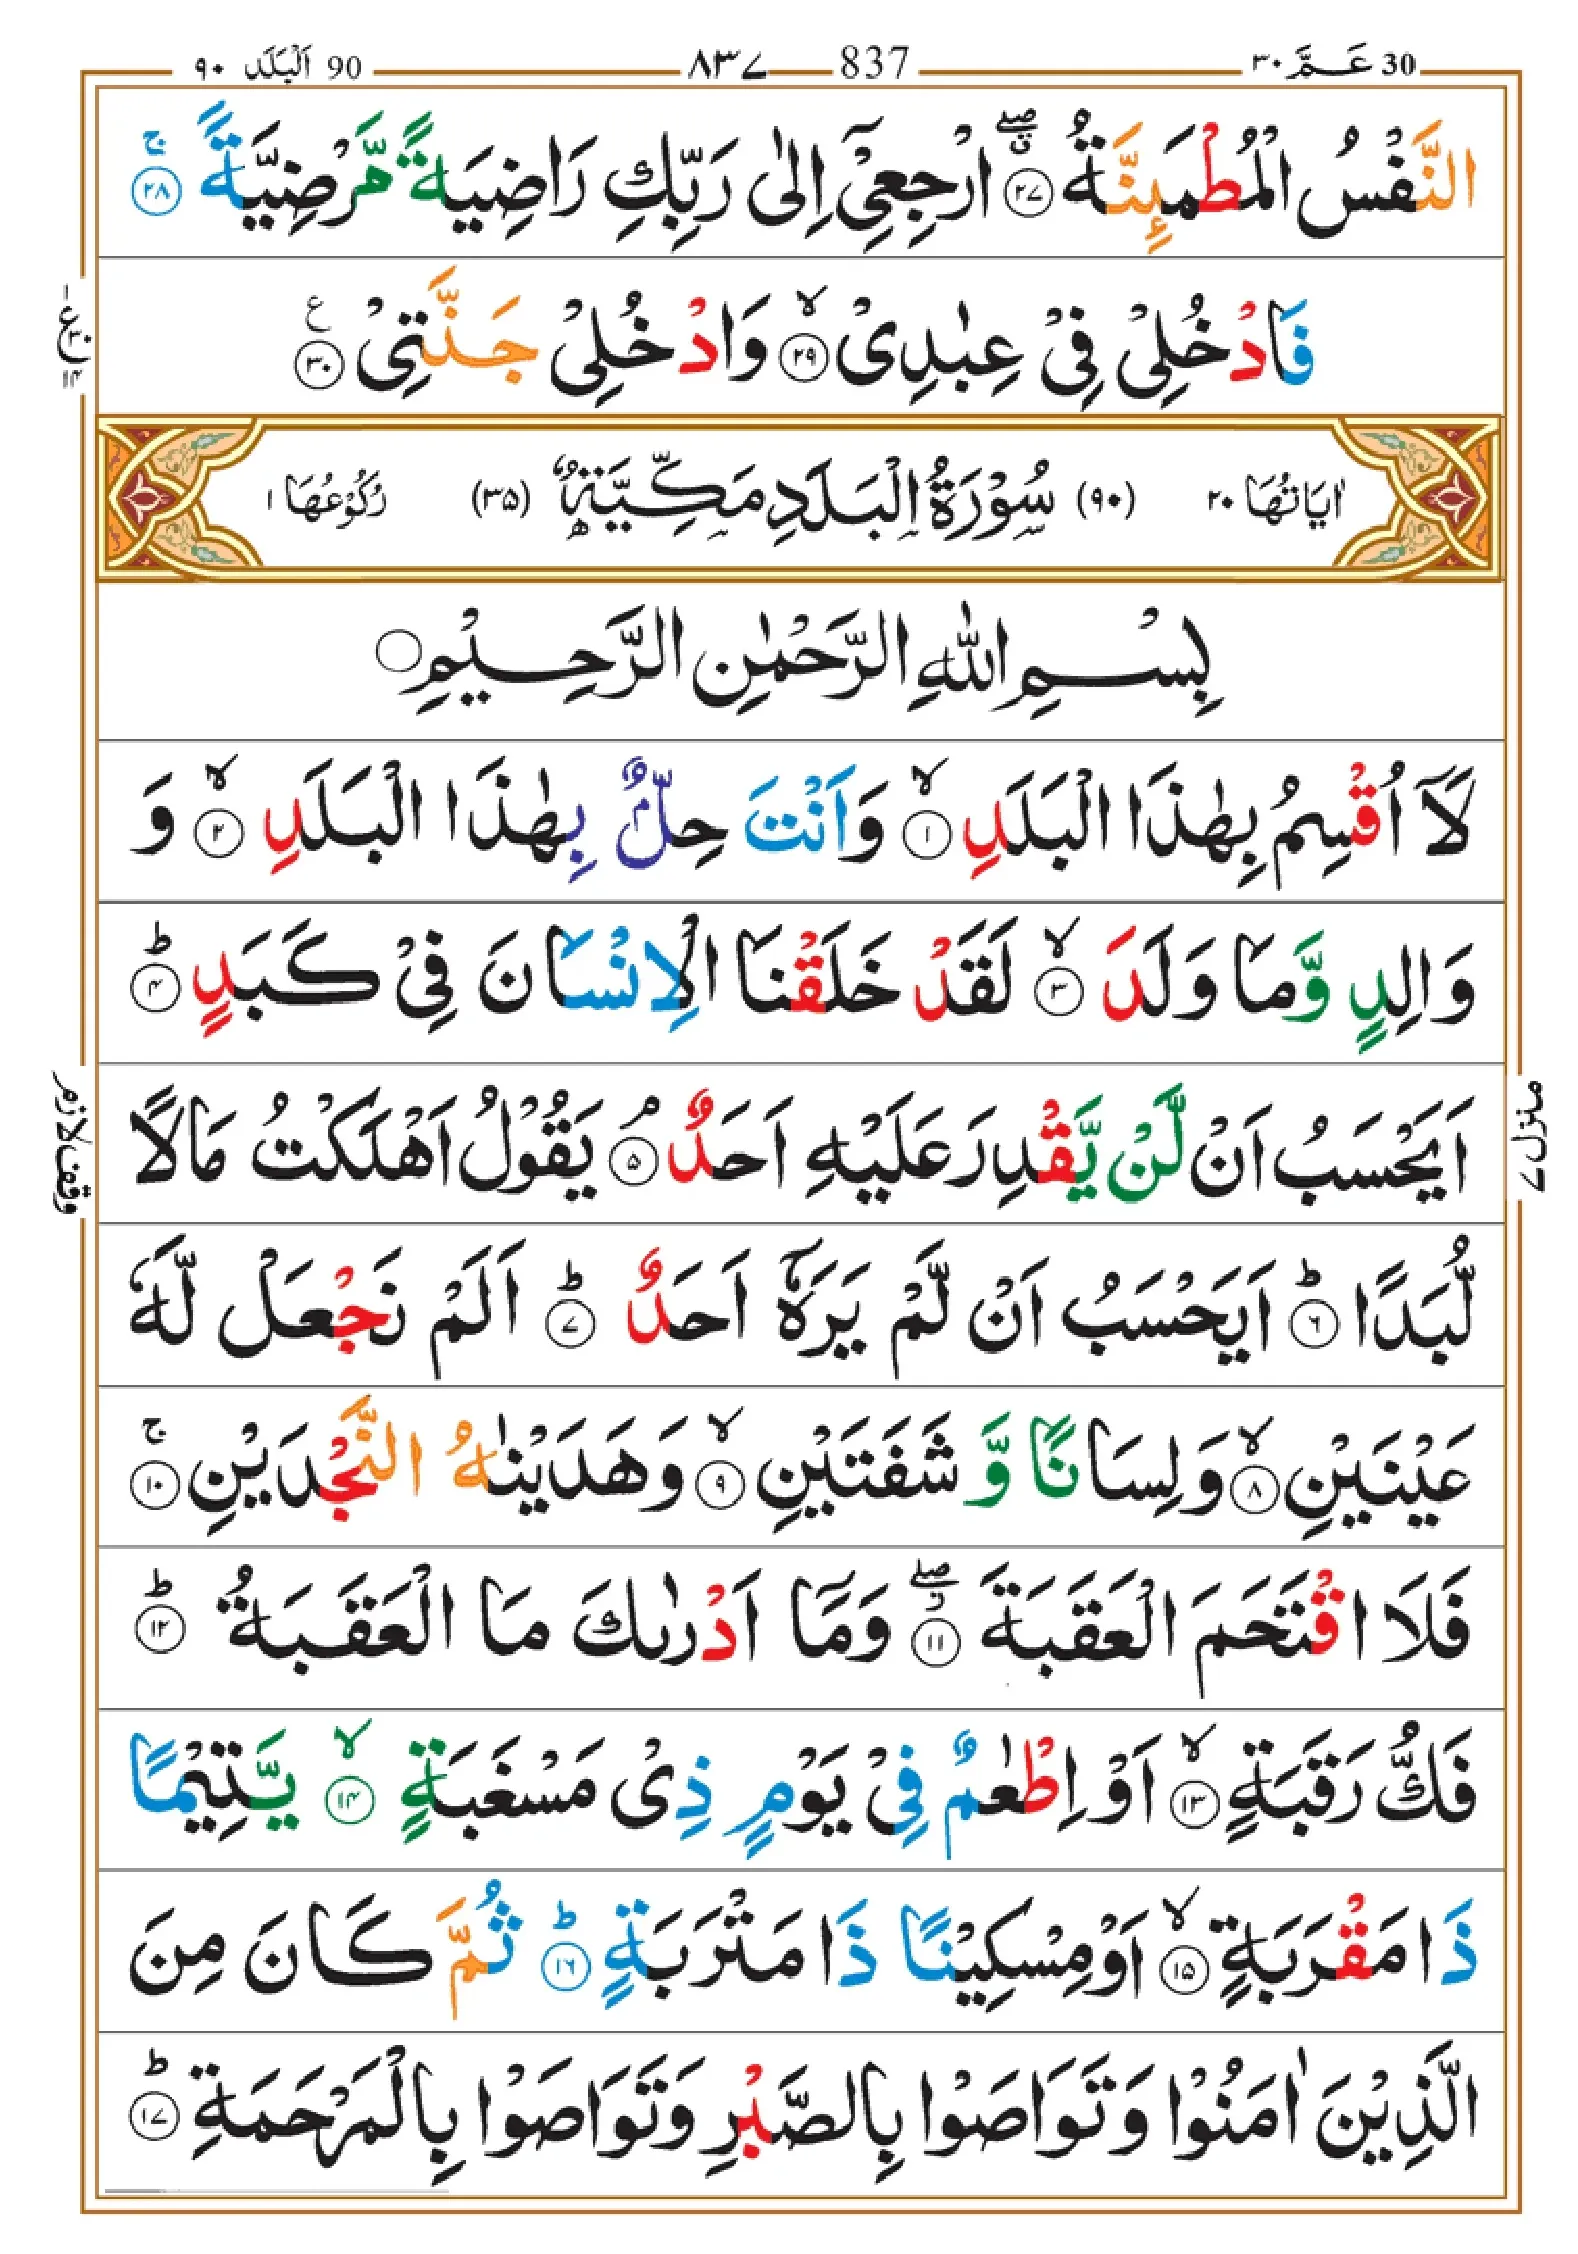 30 عَمَّ ٣٠
837 ٨٣٧
90 اَلْبَلَد ٩٠
النَّفْسُ الْمُطْمَئِنَّةُ ۝٢٧ ارْجِعِيْۤ اِلٰى رَبِّكِ رَاضِيَةً مَّرْضِيَّةً ۚ‏۝٢٨
فَادْخُلِيْ فِيْ عِبٰدِيْ ۙ‏۝٢٩ وَادْخُلِيْ جَنَّتِيْ ۝٣٠ ع
اٰيَاتُهَا ٢٠ (٩٠) سُوْرَةُ الْبَلَدِ مَكِّيَّةٌ (٣٥) رُكُوْعُهَا ١
بِسْمِ اللّٰهِ الرَّحْمٰنِ الرَّحِيْمِ ۝
لَاۤ اُقْسِمُ بِهٰذَا الْبَلَدِ ۙ‏۝١ وَاَنْتَ حِلٌّۢ بِهٰذَا الْبَلَدِ ۙ‏۝٢ وَ
وَالِدٍ وَّمَا وَلَدَ ۙ‏۝٣ لَقَدْ خَلَقْنَا الْاِنْسَانَ فِيْ كَبَدٍ ؕ‏۝٤
اَيَحْسَبُ اَنْ لَّنْ يَّقْدِرَ عَلَيْهِ اَحَدٌ ۘ‏۝٥ يَقُوْلُ اَهْلَكْتُ مَالًا
لُّبَدًا ؕ‏۝٦ اَيَحْسَبُ اَنْ لَّمْ يَرَهٗۤ اَحَدٌ ؕ‏۝٧ اَلَمْ نَجْعَلْ لَّهٗ
عَيْنَيْنِ ۙ‏۝٨ وَلِسَانًا وَّ شَفَتَيْنِ ۙ‏۝٩ وَهَدَيْنٰهُ النَّجْدَيْنِ ۚ‏۝١٠
فَلَا اقْتَحَمَ الْعَقَبَةَ ۝١١ وَمَاۤ اَدْرٰىكَ مَا الْعَقَبَةُ ؕ‏۝١٢
فَكُّ رَقَبَةٍ ۙ‏۝١٣ اَوْ اِطْعٰمٌ فِيْ يَوْمٍ ذِيْ مَسْغَبَةٍ ۙ‏۝١٤ يَّتِيْمًا
ذَا مَقْرَبَةٍ ۙ‏۝١٥ اَوْ مِسْكِيْنًا ذَا مَتْرَبَةٍ ؕ‏۝١٦ ثُمَّ كَانَ مِنَ
الَّذِيْنَ اٰمَنُوْا وَتَوَاصَوْا بِالصَّبْرِ وَتَوَاصَوْا بِالْمَرْحَمَةِ ؕ‏۝١٧
وقف لازم
منزل ٧